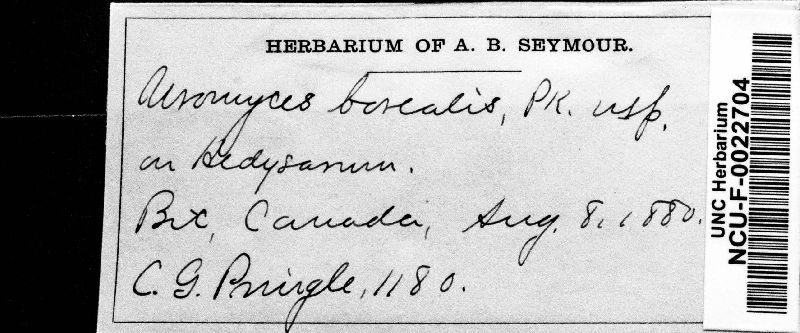 HERBARIUM OF A. B. SEYMOUR.
Uromyces borealis, Pk. nsp.
on Hedysarum.
Bic, Canada, Aug. 8, 1880.
C. G. Pringle, 1180.
UNC Herbarium
NCU-F-0022704